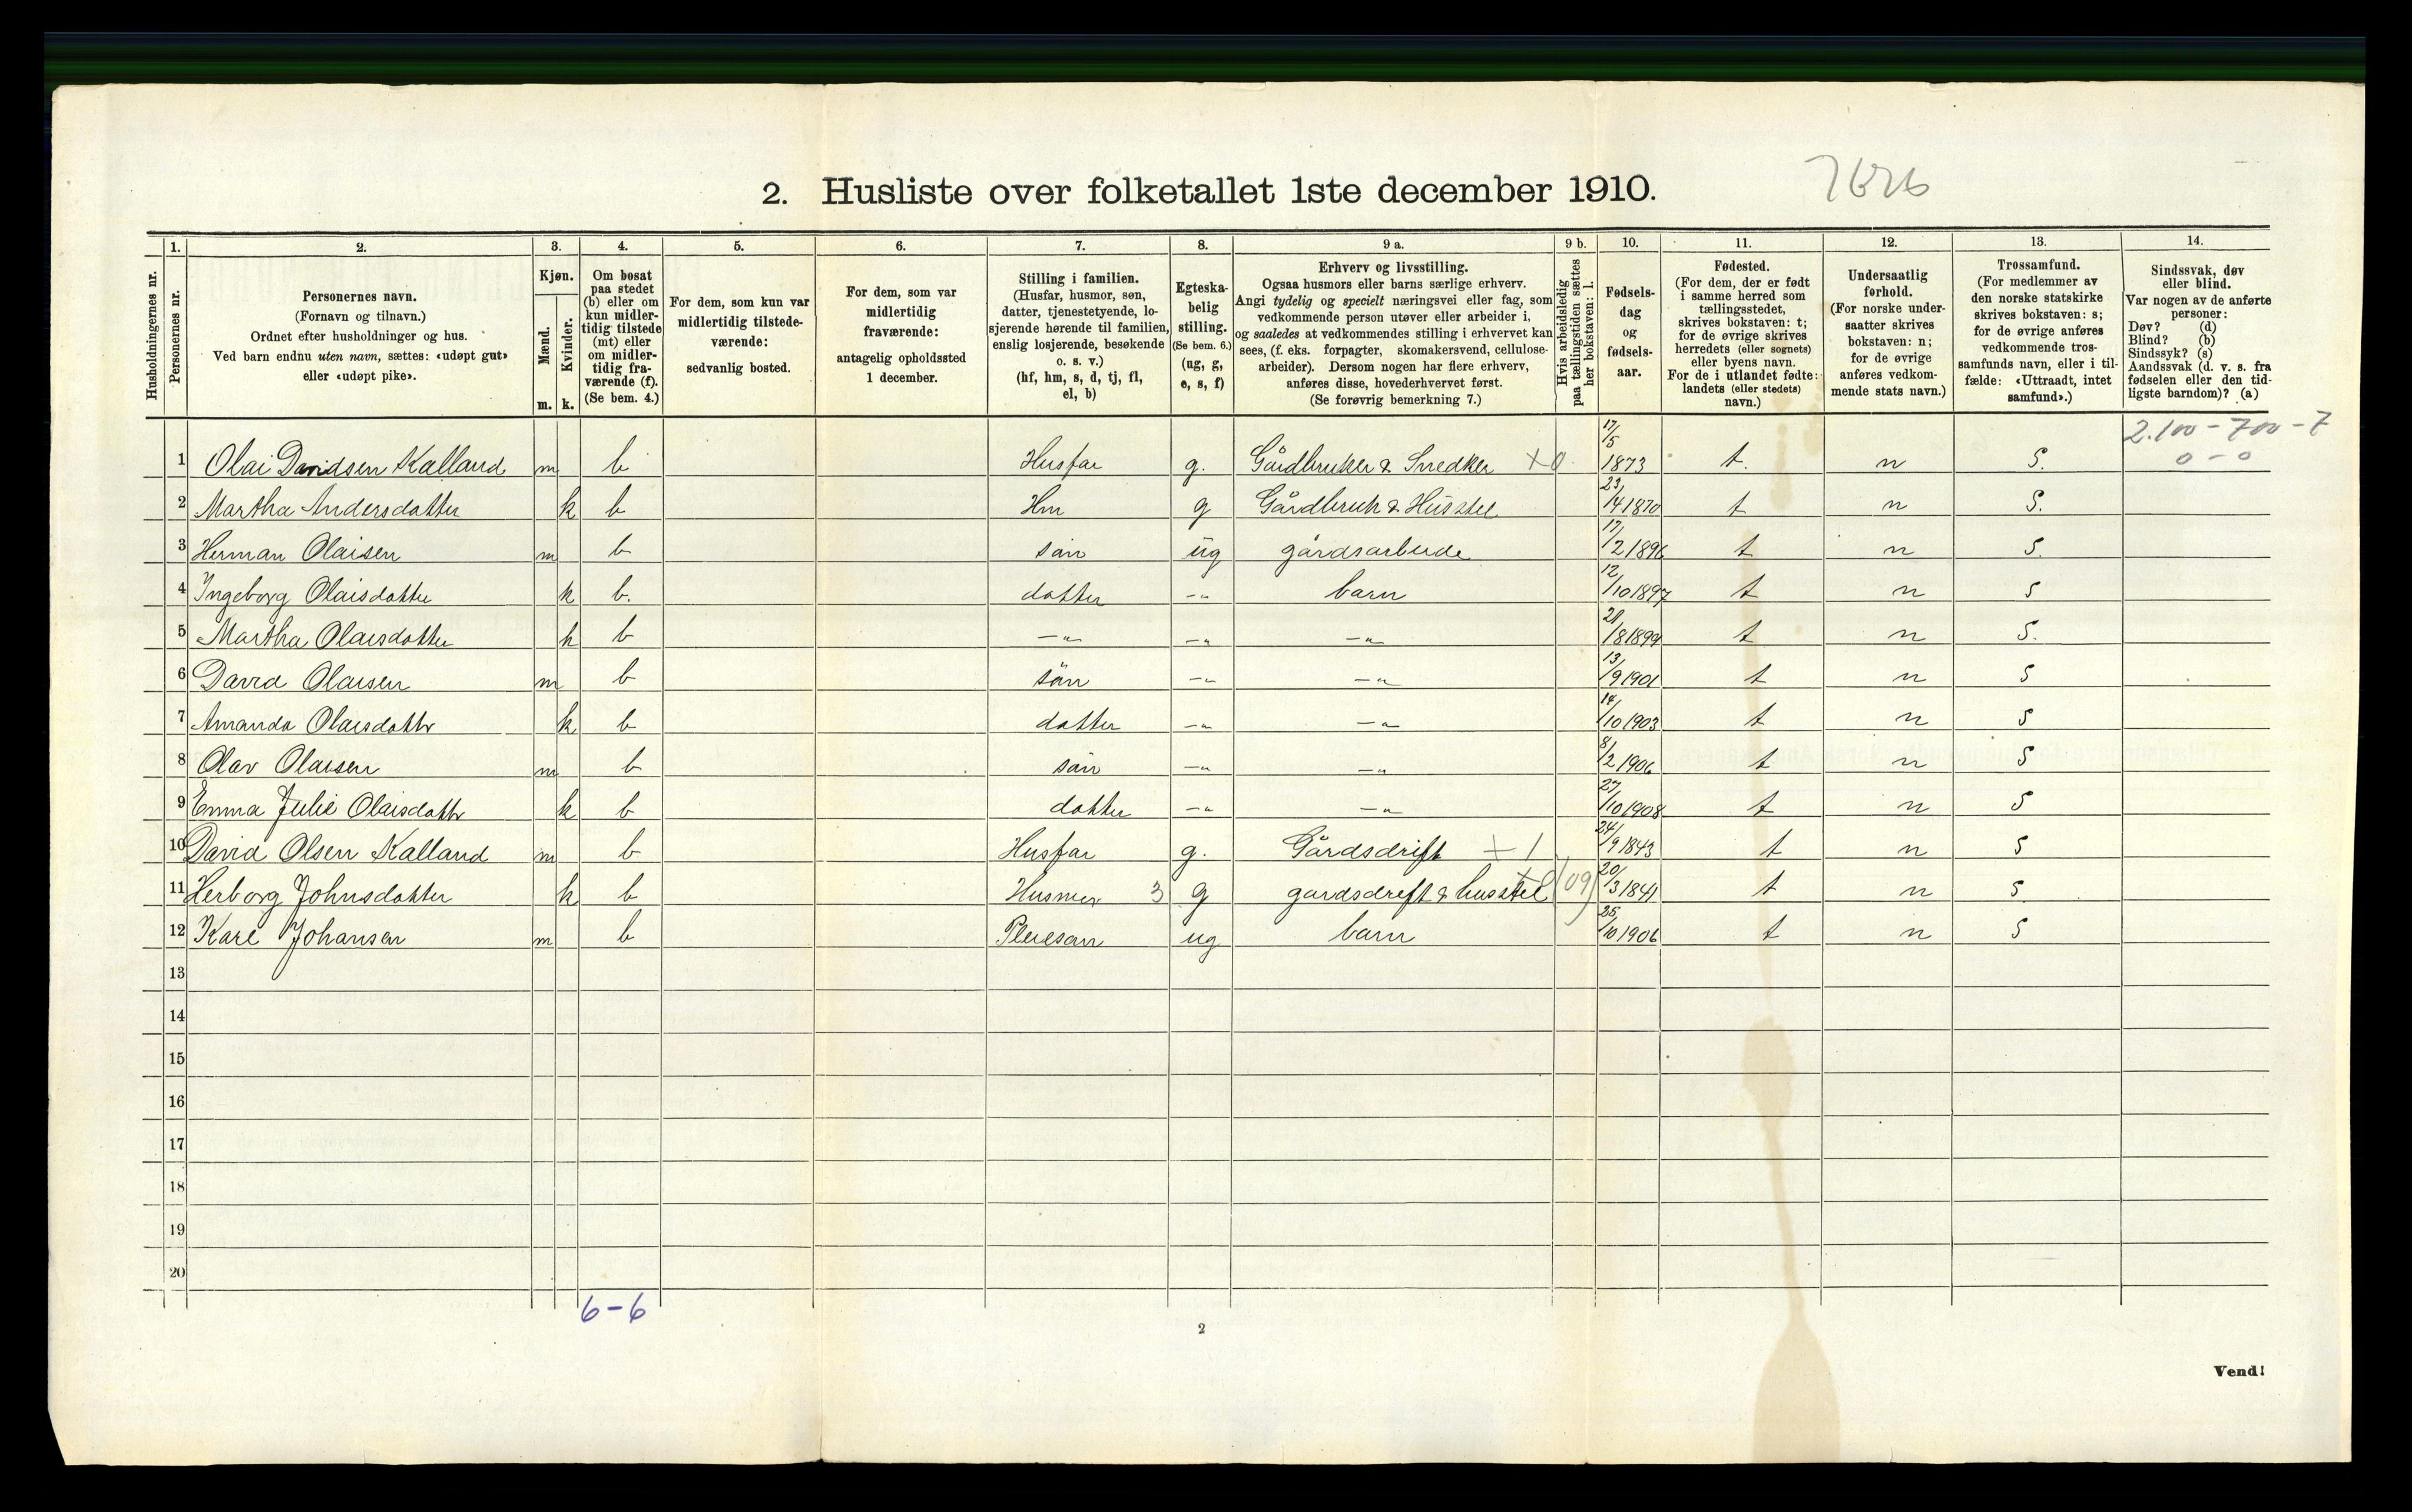 2. Husliste over folketallet 1ste december 1910.
Husholdningernes nr.
1. Personernes nr.
2. Personernes navn.
(Fornavn og tilnavn.)
Ordnet efter husholdninger og hus.
Ved barn endnu uten navn, sættes: «udøpt gut»
eller «udøpt pike».
3. Kjøn.
Mænd. m.
Kvinder. k.
4. Om bosat
paa stedet
(b) eller om
kun midler-
tidig tilstede
(mt) eller
om midler-
tidig fra-
værende (f).
(Se bem. 4.)
5. For dem, som kun var
midlertidig tilstede-
værende:
sedvanlig bosted.
6. For dem, som var
midlertidig
fraværende:
antagelig opholdssted
1 december.
7. Stilling i familien.
(Husfar, husmor, søn,
datter, tjenestetyende, lo-
sjerende hørende til familien,
enslig losjerende, besøkende
o. s. v.)
(hf, hm, s, d, tj, fl,
el, b)
8. Egteska-
belig
stilling.
(Se bem. 6.)
(ug, g,
e, s, f)
9 a. Erhverv og livsstilling.
Ogsaa husmors eller barns særlige erhverv.
Angi tydelig og specielt næringsvei eller fag, som
vedkommende person utøver eller arbeider i,
og saaledes at vedkommendes stilling i erhvervet kan
sees, (f. eks. forpagter, skomakersvend, cellulose-
arbeider). Dersom nogen har flere erhverv,
anføres disse, hovederhvervet først.
(Se forøvrig bemerkning 7.)
9 b. Hvis arbeidsledig
paa tællingstiden sættes
her bokstaven: l.
10. Fødsels-
dag
og
fødsels-
aar.
11. Fødested.
(For dem, der er født
i samme herred som
tællingsstedet,
skrives bokstaven: t;
for de øvrige skrives
herredets (eller sognets)
eller byens navn.
For de i utlandet fødte:
landets (eller stedets)
navn.)
12. Undersaatlig
forhold.
(For norske under-
saatter skrives
bokstaven: n;
for de øvrige
anføres vedkom-
mende stats navn.)
13. Trossamfund.
(For medlemmer av
den norske statskirke
skrives bokstaven: s;
for de øvrige anføres
vedkommende tros-
samfunds navn, eller i til-
fælde: «Uttraadt, intet
samfund».)
14. Sindssvak, døv
eller blind.
Var nogen av de anførte
personer:
Døv? (d)
Blind? (b)
Sindssyk? (s)
Aandssvak (d. v. s. fra
fødselen eller den tid-
ligste barndom)? (a)
2.100 - 700 - 7
0 - 0
1 Olai Davidsen Kalland m b Husfar g. Gårdbruker & Snedker +0 17/5 1873 t. n S.
2 Martha Andersdatter k b Hm g Gårdbruk & Hüsstel 23/4 1870 t n S.
3 Herman Olaisen m b sön üg gårdsarbeide 17/2 1896 t n S.
4 Ingeborg Olaisdatter k b. datter -"- barn 12/10 1897 t n S
5 Martha Olaisdatter k b -"- -"- -"- 21/8 1899 t n S.
6 David Olaisen m b sön -"- -"- 13/9 1901 t n S
7 Amanda Olaisdattr k b datter -"- -"- 14/10 1903 t n S
8 Olav Olaisen m b sön -"- -"- 8/2 1906 t n S
9 Emma Julie Olaisdattr k b datter -"- -"- 27/10 1908 t n S
10 David Olsen Kalland m b Husfar g. Gårdsdrift +1 24/9 1843 t n S
11 Herborg Johnsdatter k b Husmor 3 g gardsdreft & husstel (09) 20/3 1841 t n S.
12 Kare Johansen m b Pleiesøn ug barn 25/10 1906 t n S
13
14
15
16
17
18
19
20
6-6
2
Vend!